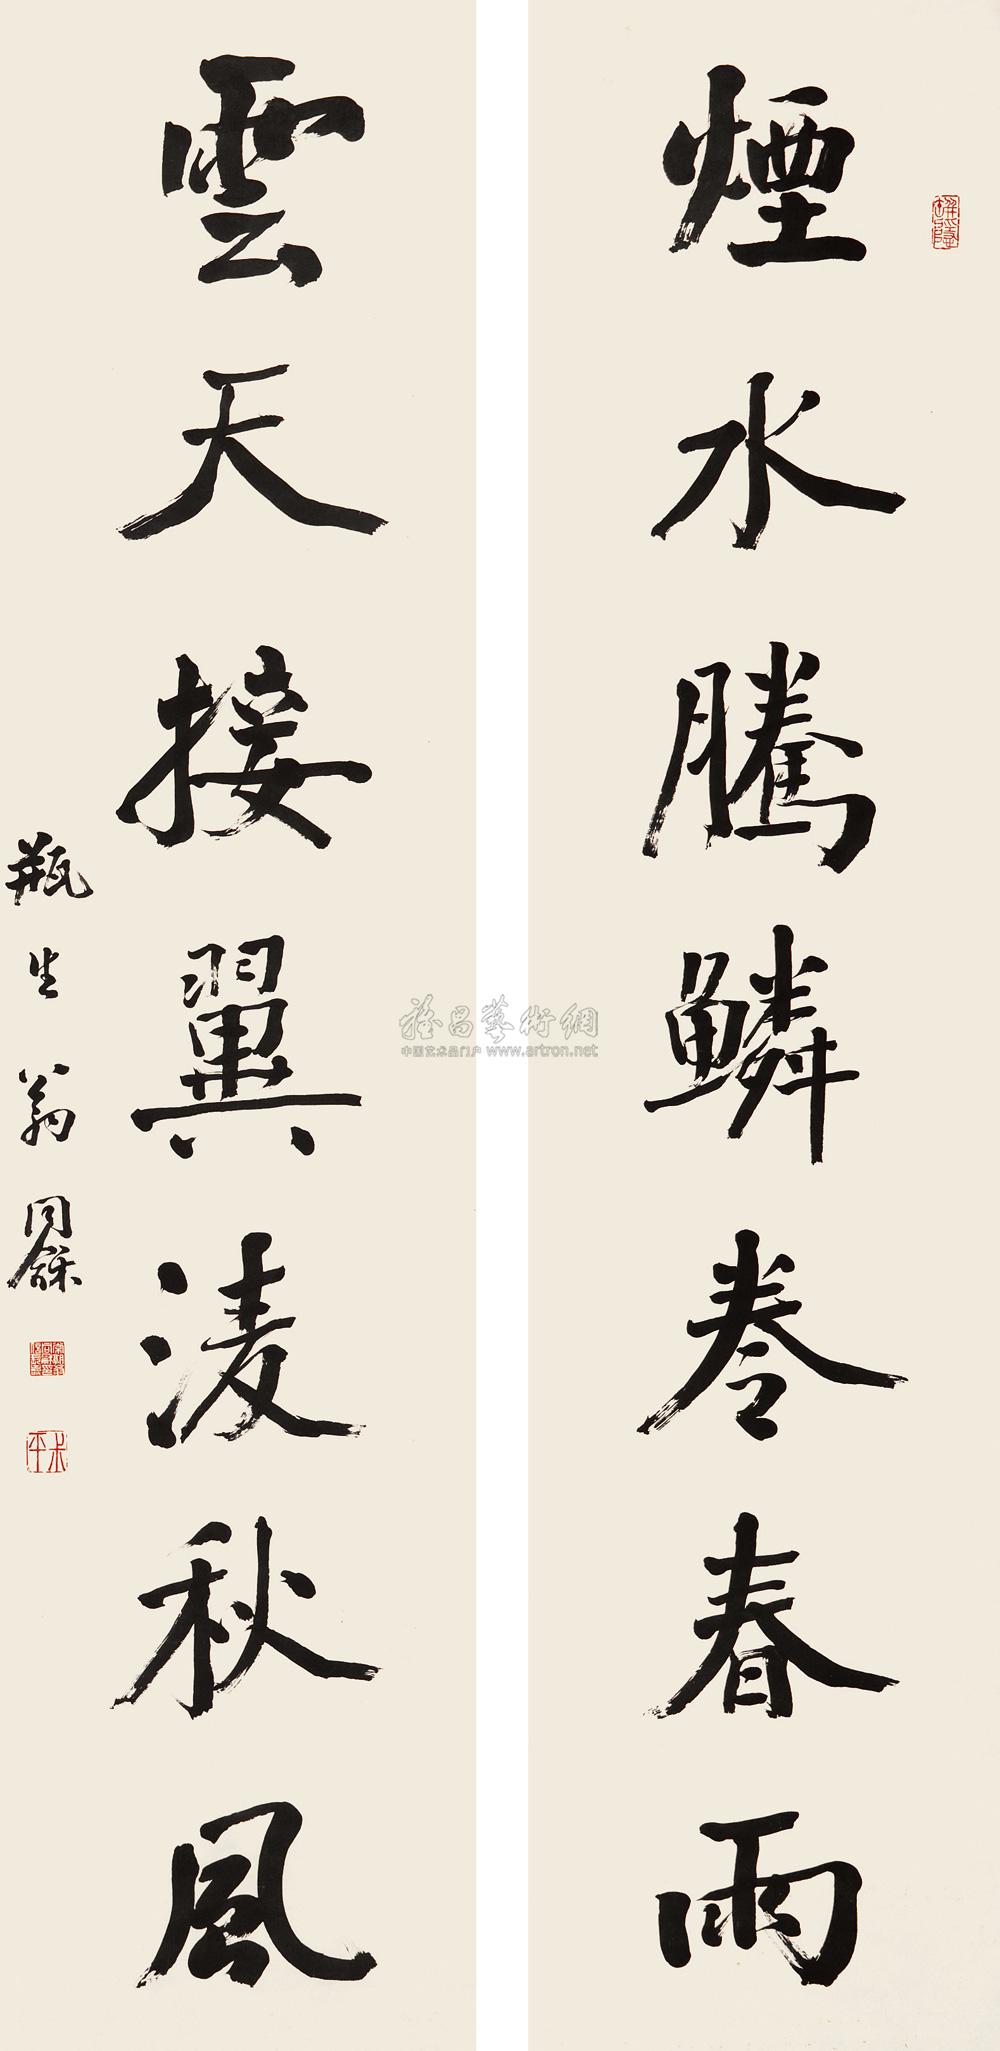 煙水騰鱗卷春雨
雲天接翼淩秋風
瓶生翁同龢
雅昌藝術網
中国艺术品门户 www.artron.net
叔平